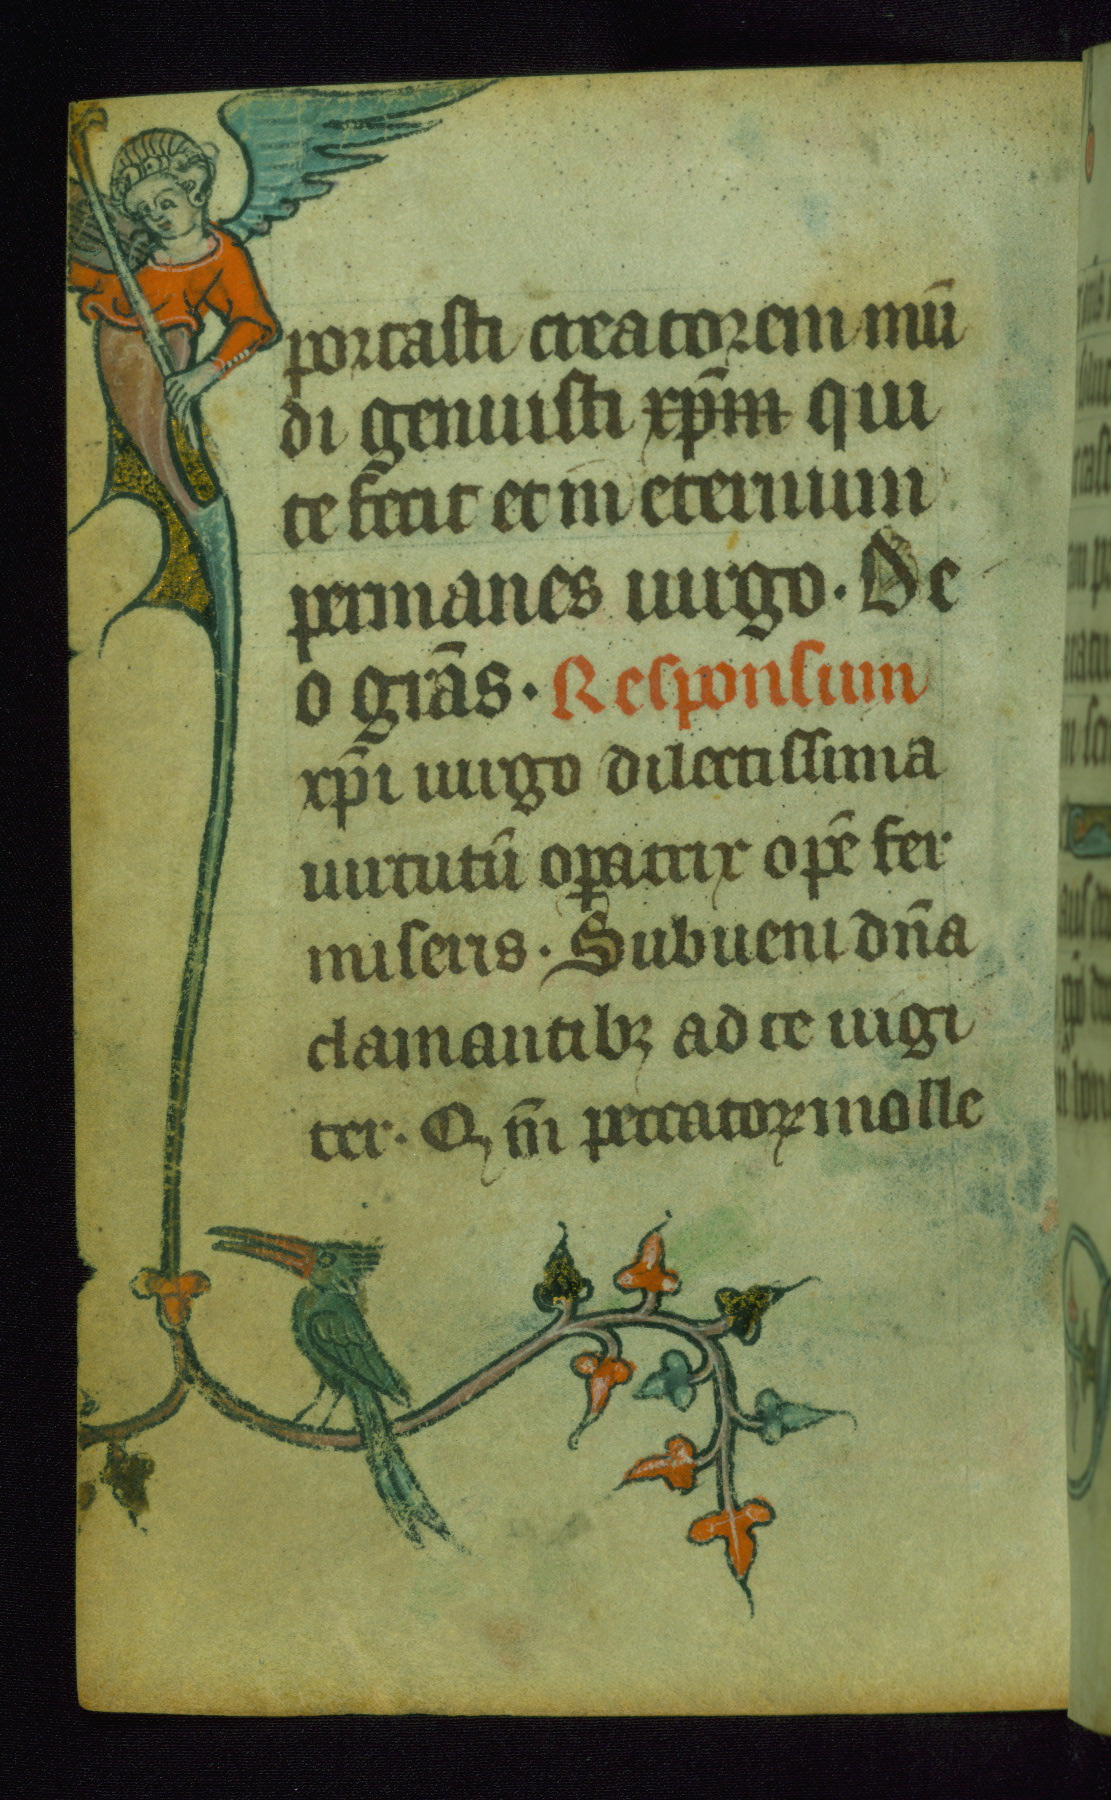 portasti creatorem mū
di genuisti xp̄m qui
te fecit et in eternum
permanes uirgo. De
o grās. Responsium
xp̄i uirgo dilectissima
uirtutū oꝑatrix opē fer
miseris. Subueni dn̄a
clamantibꝫ ad te iugi
ter. Qm̄ peccatoꝝ molle